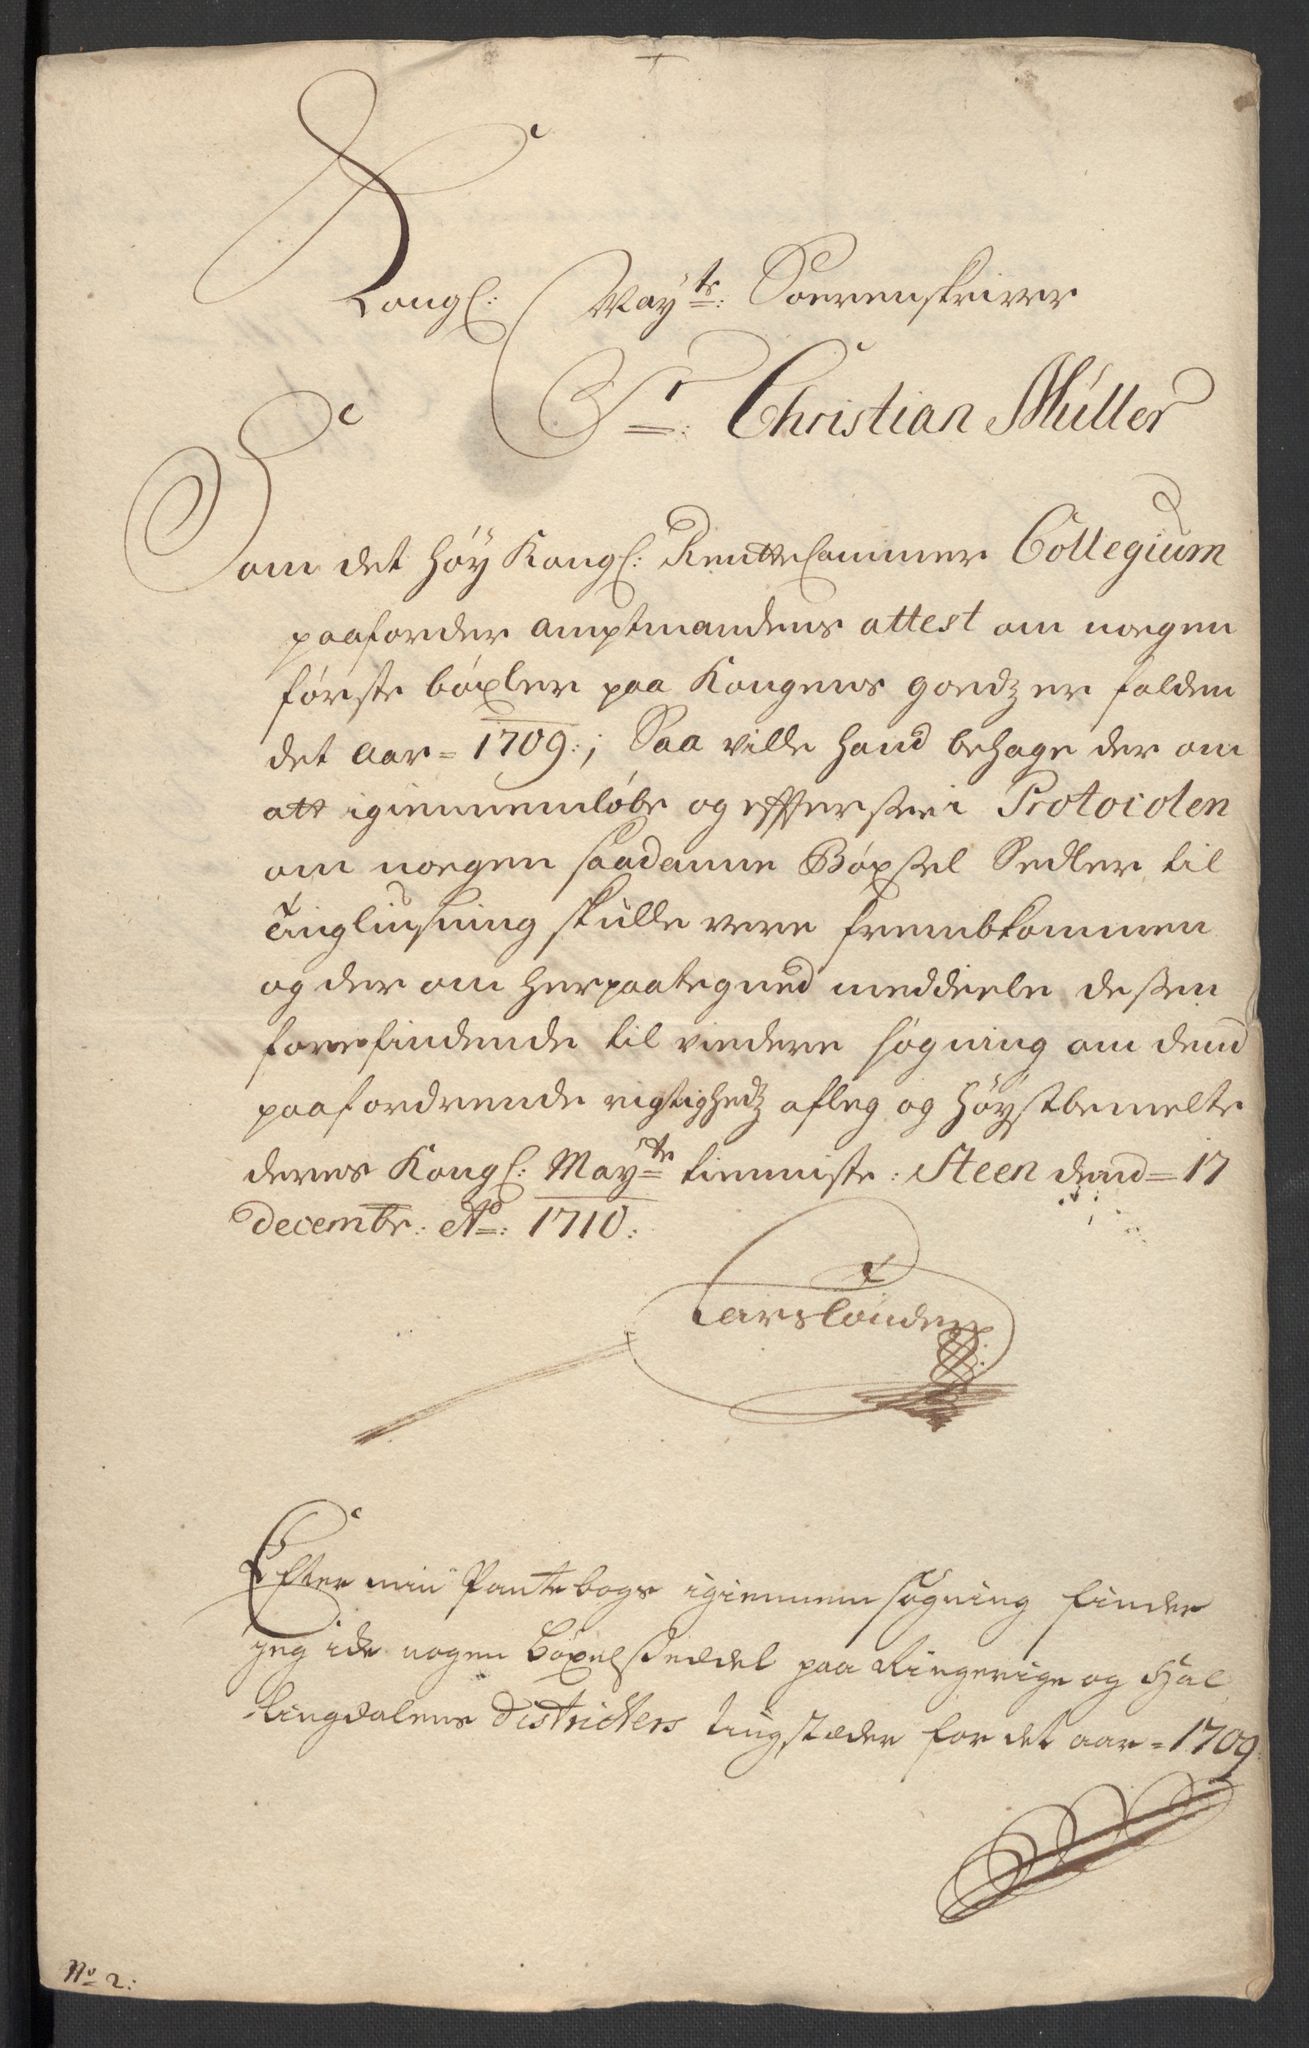 Kongl: May^ts: Soerenskriver
S^r: Christian Müller
Som det høy Kongl: RentteCammer Collegium
paaforder amptmandens attest om noegen
første bøxler paa Kongens goedz er falden
det aar= 1709:; Saa ville hand behage der om
att igiennemløbe og effterssee i Protocolen
om noegen saadanne Bøxsel Sedler til
Tinglusning skulle vere frembkommen
og der om herpaategned meddeele dessen
forrefindende til viedere søgning om dend
paafordrende rigtighedz afleg og Høystbemelte
deres Kongl: May^ts tienniste: Steen dend= 17
decembr: A^o: 1710:
Lars Tønder
Efter min Pantebogs igiennem søgning finder
jeg icke nogen bøxelseddel paa Ringerige og Hal
lingdalens Districters tingstæder for det aar= 1709
N^o 2: